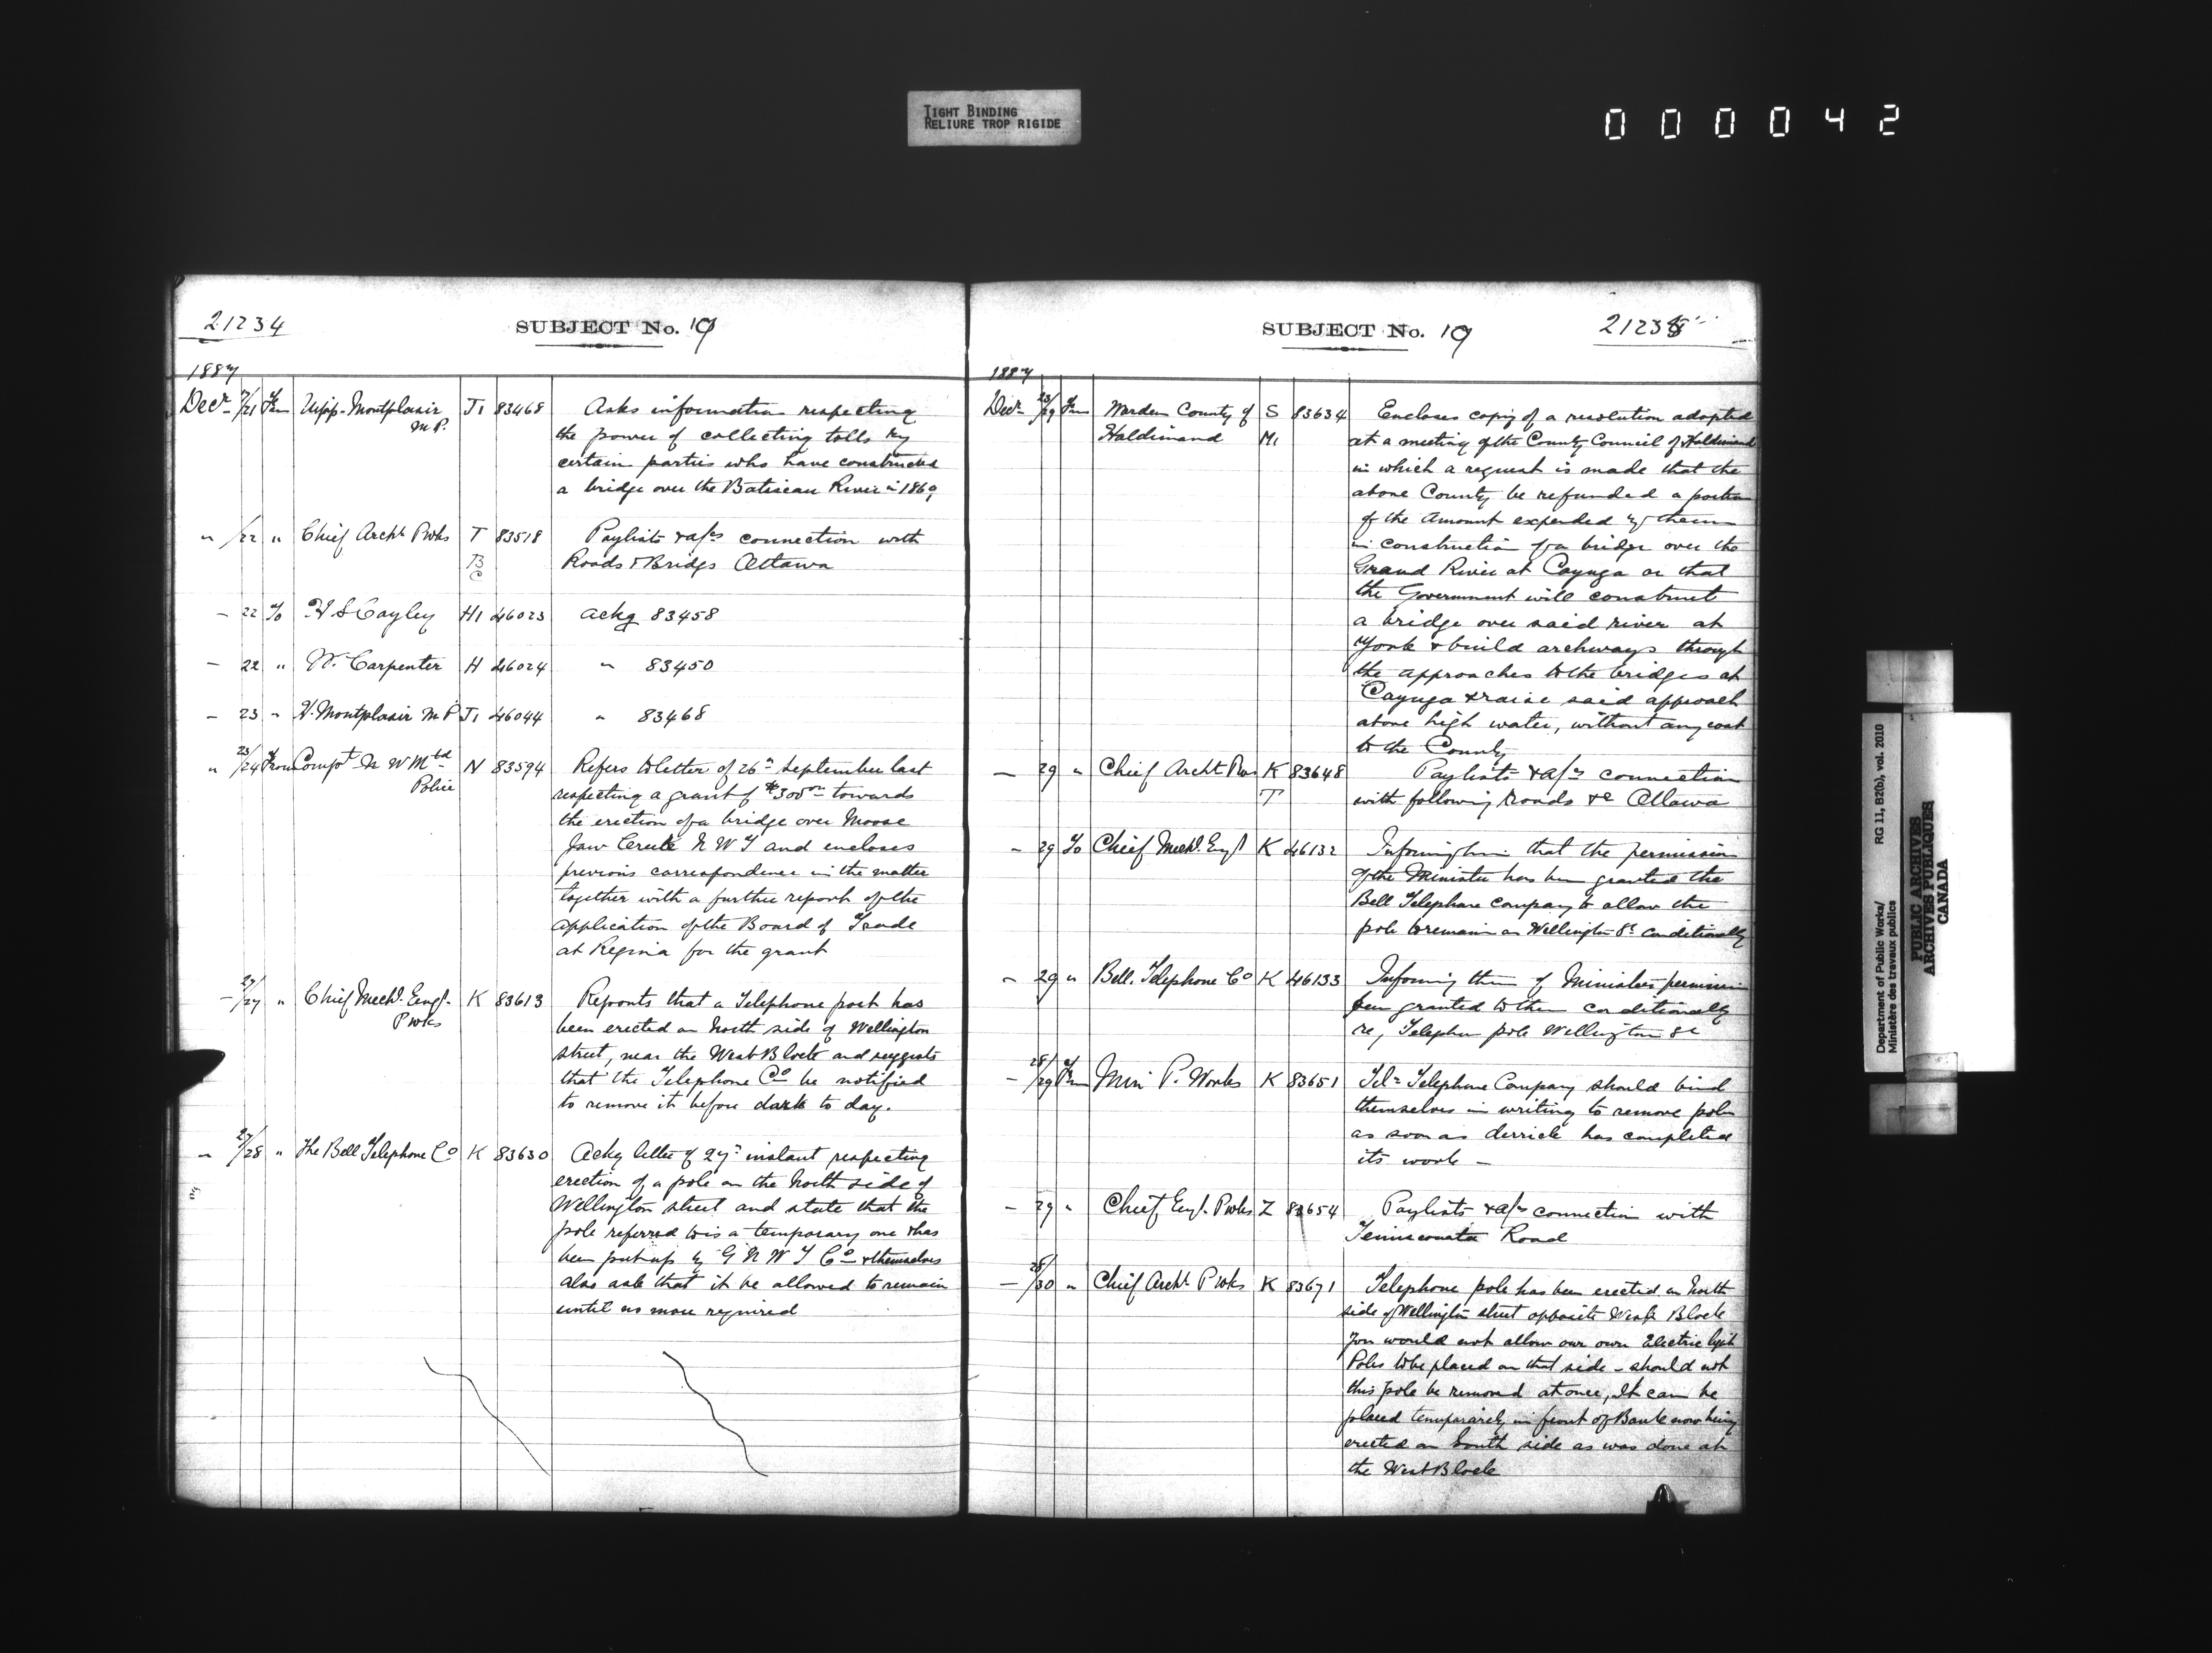 TIGHT BINDING
RELIURE TROP RIGIDE
000042
21234
SUBJECT No. 19
1887
Decr /21 From Hipp. Montplaisir J1 83468 Asks information respecting
M.P. the power of collecting tolls by
certain parties who have constructed
a bridge over the Batiscan River in 1869
" /22 " Chief Archt Pwks T 83518 Paylists & a/cs connection with
B Roads & Bridgs Ottawa
C
- 22 To H S Cayley H1 46023 ackg 83458
- 22 " W. Carpenter H 46024 " 83450
- 23 " H. Montplaisir M P J1 46044 " 83468
" 23/24 From Compt N W Mtd N 83594 Refers to letter of 26th September last
Police respecting a grant of $300.00 towards
the erection of a bridge over Moose
Jaw Creek N W T and encloses
previous correspondence in the matter
together with a further report of the
application of the Board of Trade
at Regina for the grant
- 27/27 " Chief Mechl. Engr. K 83613 Reports that a Telephone post has
Pwks been erected on North side of Wellington
street, near the West Block and suggests
that the Telephone Co be notified
to remove it before dark to day.
" 27/28 " The Bell Telephone Co K 83630 Ackg letter of 27th instant respecting
erection of a pole on the North side of
Wellington street and state that the
pole referred to is a temporary one & has
been put up by G N W T Co & themselves
also ask that it be allowed to remain
until no more required
SUBJECT No. 19
21235
1887
Decr 23/29 From Warden County of S 83634 Encloses copy of a resolution adopted
Haldimand M1 at a meeting of the County Council of Haldimand
in which a request is made that the
above County be refunded a portion
of the amount expended by them
in construction of a bridge over the
Grand River at Cayuga or that
the Government will construct
a bridge over said river at
York & build archways through
the approaches to the bridges at
Cayuga & raise said approach
above high water, without any cost
to the County
- 29 " Chief Archt Pws K 83648 Paylists & a/cs connection
T with following roads &c Ottawa
- 29 To Chief Mechl. Engr K 46132 Informing him that the permission
of the Minister has been granted the
Bell Telephone Company to allow the
pole to remain on Wellington St conditionally
- 29 " Bell. Telephone Co K 46133 Informing them of Ministers permission
been granted to them conditionally
re, Telephon pole Wellington St
- 28/29 From Min P. Works K 83651 Tel= Telephone Company should bind
themselves in writing to remove pole
as soon as derrick has completed
its work -
- 29 " Chief Engr. Pwks Z 83654 Paylists & a/cs connection with
Temiscouata Road
- 28/30 " Chief Archt Pwks K 83671 Telephone pole has been erected on North
side of Wellington street opposite West Block
You would not allow our own Electric light
Poles to be placed on that side - should not
this pole be removed at once, It can be
placed temporarily in front of Bank now being
erected on South side as was done at
the West Block
Department of Public Works/ RG 11, B2(b), vol. 2010
Ministère des travaux publics
PUBLIC ARCHIVES
ARCHIVES PUBLIQUES
CANADA